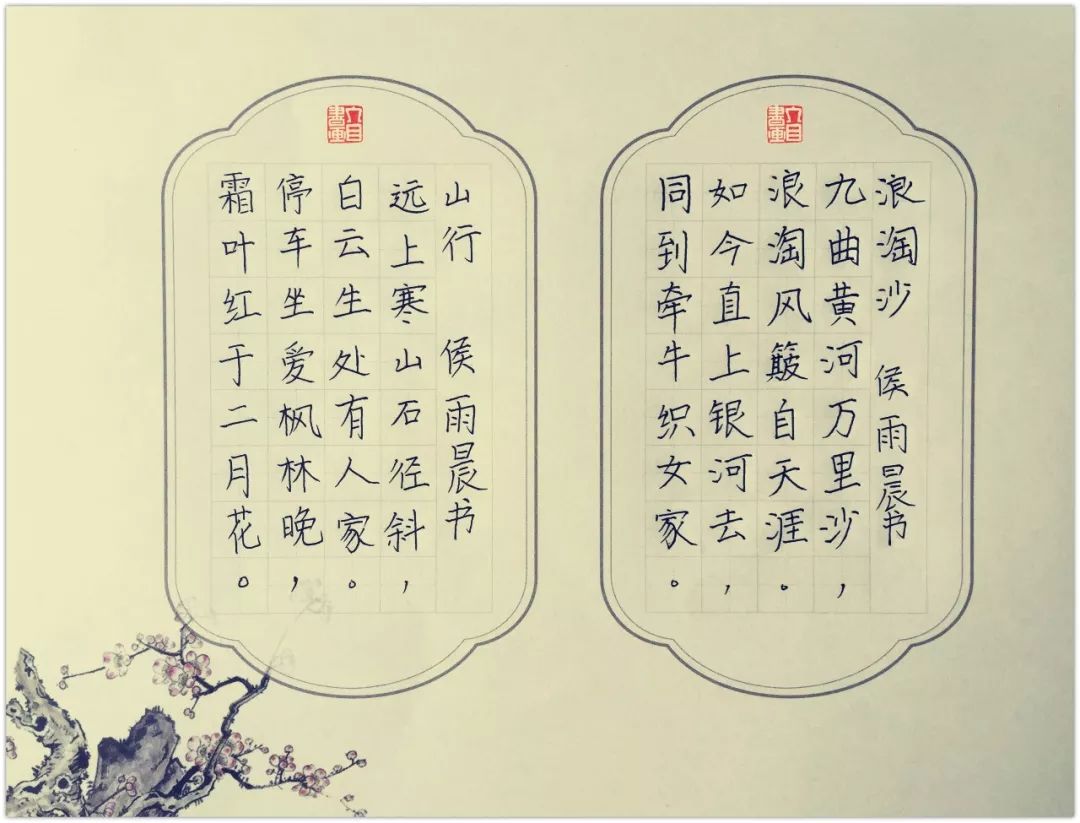 立目書画
浪淘沙 侯雨晨书
九曲黄河万里沙，
浪淘风簸自天涯。
如今直上银河去，
同到牵牛织女家。
立目書画
山行 侯雨晨书
远上寒山石径斜，
白云生处有人家。
停车坐爱枫林晚，
霜叶红于二月花。